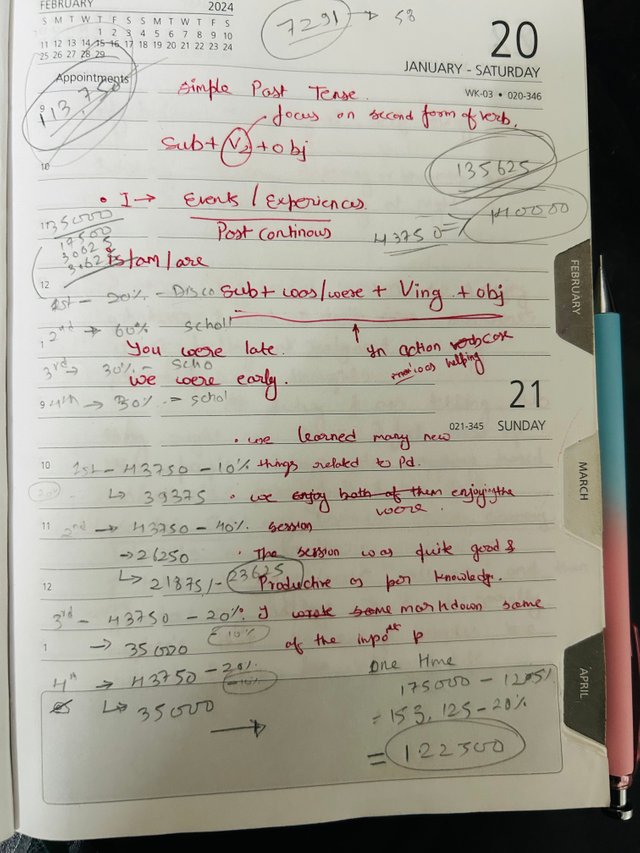 FEBRUARY 2024
S M T W T F S S M T W T F S
1 2 3 4 5 6 7 8 9 10
11 12 13 14 15 16 17 18 19 20 21 22 23 24
25 26 27 28 29
7291 → 58
20
JANUARY - SATURDAY
WK-03 • 020-346
Appointments
9
113,750
Simple Past Tense.
focus on second form of verb.
Sub + V2 + obj
10
135625
• I → Events / Experiences
140000
Past Continous
43750 =
11
35000
17500
30625
is/am/are
12
1st - 90% - Disco
Sub + was/were + Ving + obj
1
2nd → 60% schol
You were late.
↑ In action
3rd → 30% - scho
I was helping
we were early.
4th → 30% = schol
21
021-345 SUNDAY
9
• we learned many new
10
1st - 43750 - 10%
things related to Pd.
20%
↳ 39375
• we enjoy both of them enjoying the
were.
11
2nd → 43750 - 40%
session
→ 26250
• The session was quite good &
12
↳ 21875/- 23625
Productive as per knowledge.
3rd - 43750 - 20%
I wrote some markdown some
1
→ 35000
- 10%
of the
4th → 43750 - 20%
- 10%
One time
↳ 35000
→
175000 - 12.5%
= 153,125 - 20%
= 122500
FEBRUARY
MARCH
APRIL